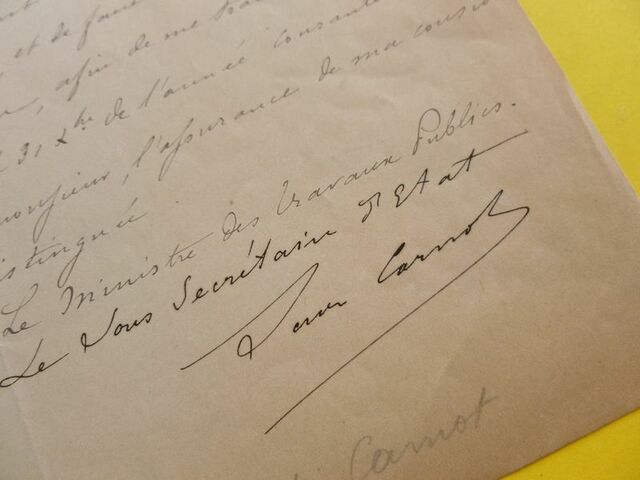 et de faire
, afin de me tran
31 Xbre de l'année courante
monsieur, l'assurance de ma consi
distinguée.
Le Ministre des Travaux Publics.
Le Sous Secrétaire d'Etat
Carnot
Carnot